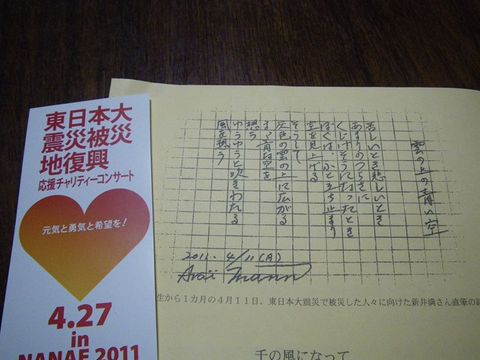 東日本大
震災被災
地復興
応援チャリティーコンサート
元気と勇気と希望を!
4.27
in
NANAE 2011
雲の上の青い空
苦しいとき悲しいとき
あまりのつらさに
くじけそうになったとき
ぼくはふと立ち止まり
空を見上げる
そうして
灰色の雲の上に広がる
まっ青な空を
想う
ゆうゆうと吹きわたる
風を想う
2011. 4/11(月)
生から1カ月の4月11日、東日本大震災で被災した人々に向けた新井満さん直筆の詩
千の風になって